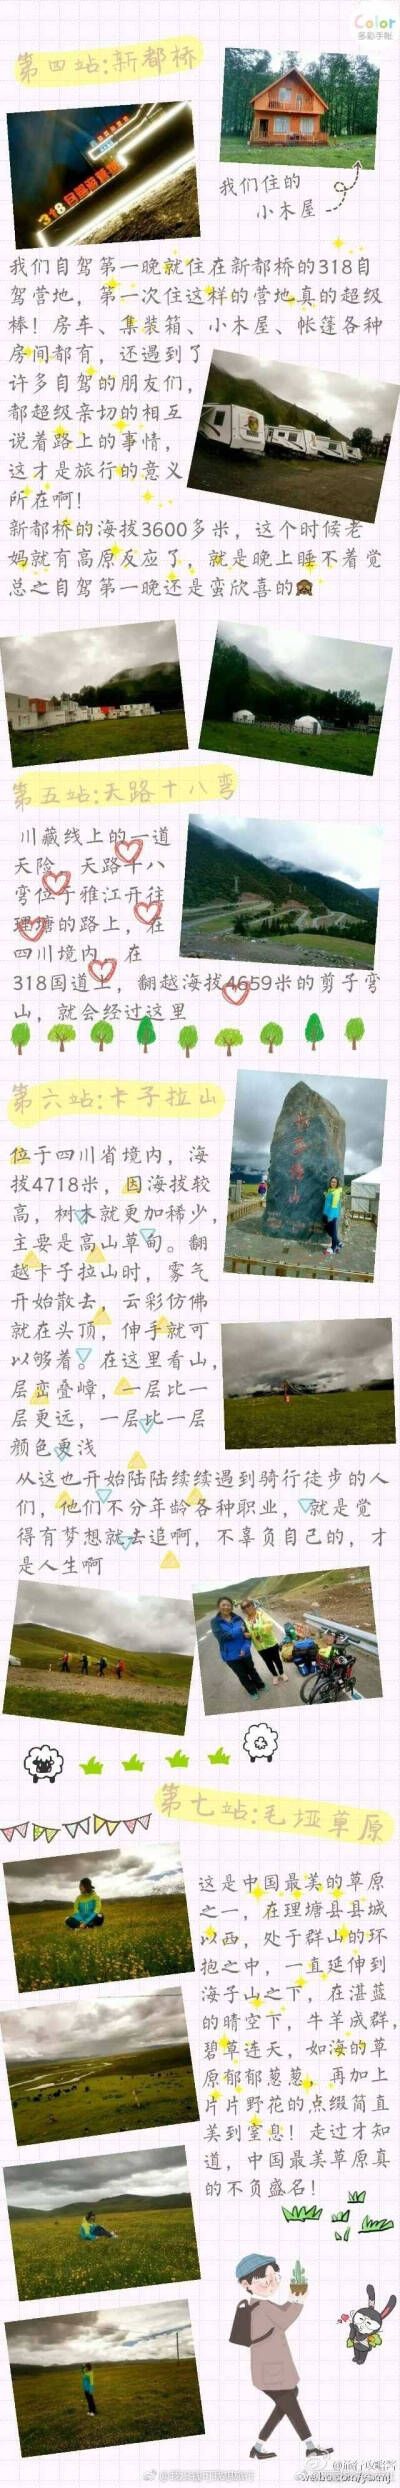 Color
多彩手帐
第四站:新都桥
318自驾游营地
我们住的
小木屋
我们自驾第一晚就住在新都桥的318自
驾营地，第一次住这样的营地真的超级
棒！房车、集装箱、小木屋、帐篷各种
房间都有，还遇到了
许多自驾的朋友们，
都超级亲切的相互
说着路上的事情，
这才是旅行的意义
所在啊！
新都桥的海拔3600多米，这个时候老
妈就有高原反应了，就是晚上睡不着觉
总之自驾第一晚还是蛮欣喜的🙈
第五站:天路十八弯
川藏线上的一道
天险，天路十八
弯位于雅江开往
理塘的路上，在
四川境内，在
318国道上，翻越海拔4659米的剪子弯
山，就会经过这里
第六站:卡子拉山
位于四川省境内，海
拔4718米，因海拔较
高，树木就更加稀少，
主要是高山草甸。翻
越卡子拉山时，雾气
开始散去，云彩仿佛
就在头顶，伸手就可
以够着。在这里看山，
层峦叠嶂，一层比一
层更远，一层比一层
颜色更浅
从这也开始陆陆续续遇到骑行徒步的人
们，他们不分年龄各种职业，就是觉
得有梦想就去追啊，不辜负自己的，才
是人生啊
第七站:毛垭草原
这是中国最美的草原
之一，在理塘县县城
以西，处于群山的环
抱之中，一直延伸到
海子山之下，在湛蓝
的晴空下，牛羊成群，
碧草连天，如海的草
原郁郁葱葱，再加上
片片野花的点缀简直
美到窒息！走过才知
道，中国最美草原真
的不负盛名！